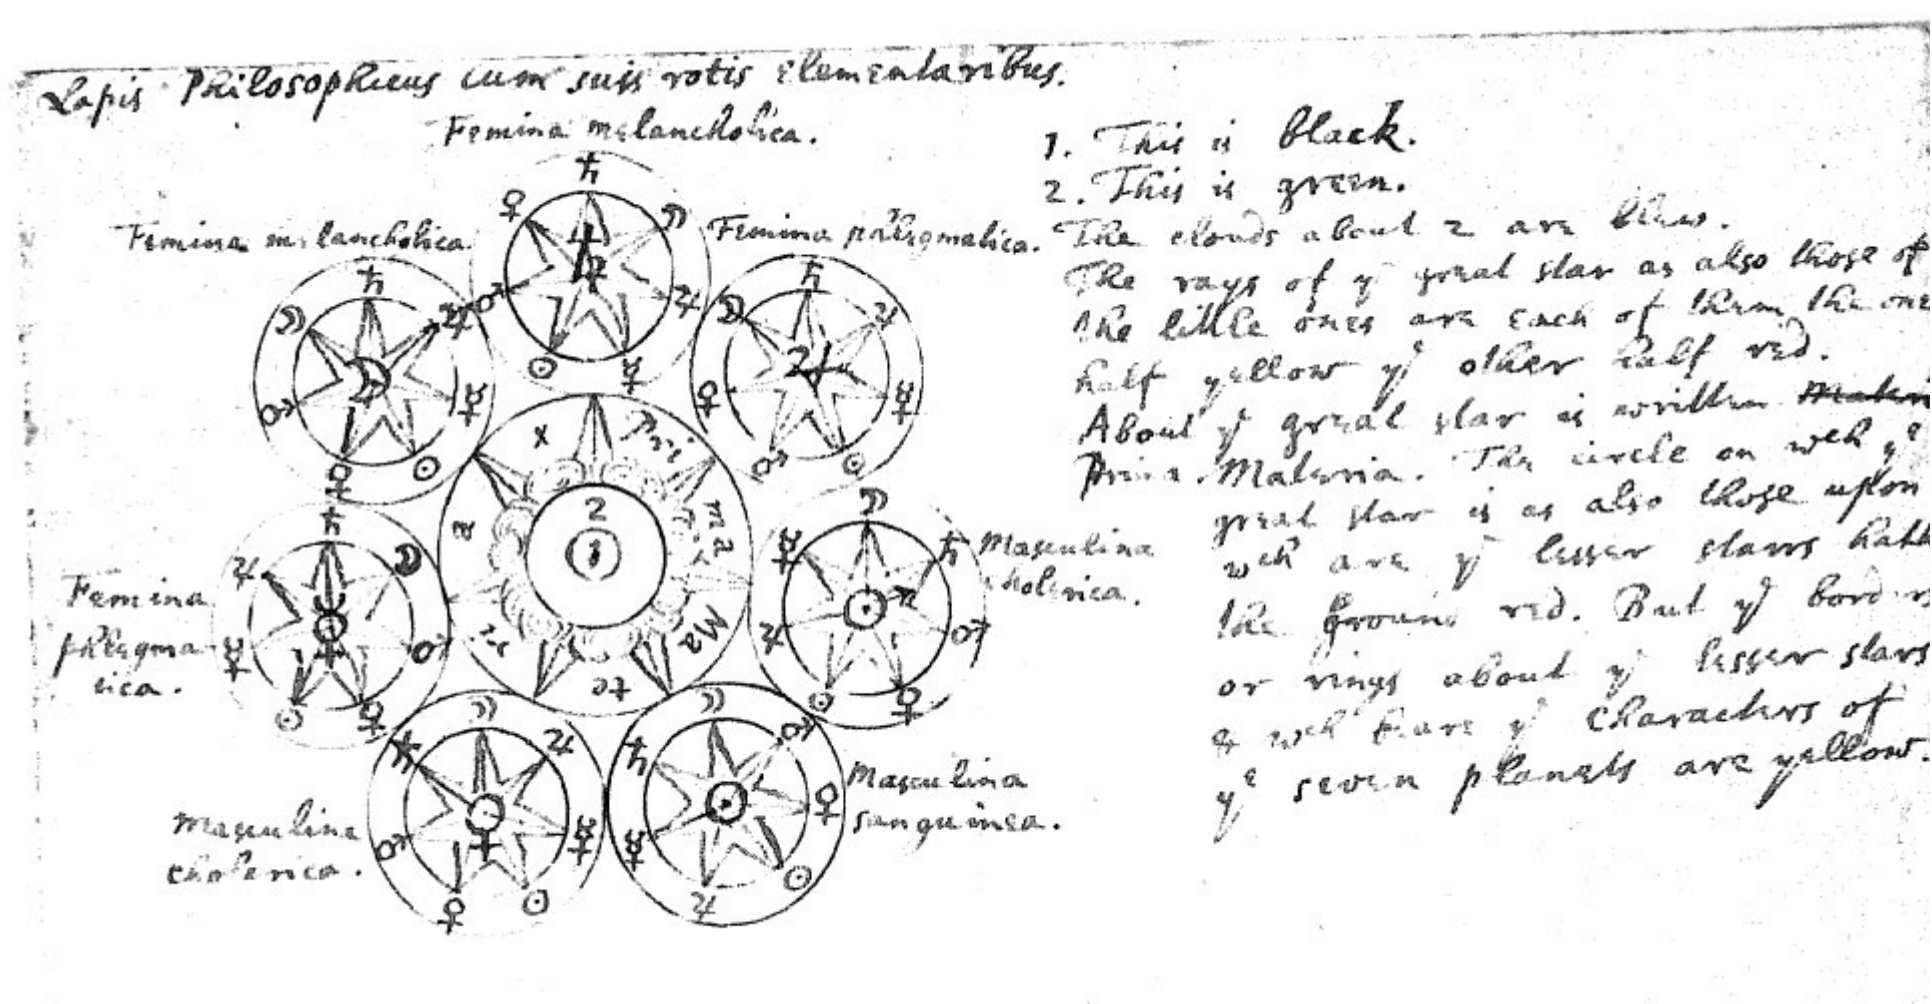 Lapis Philosophicus cum suis rotis elementaribus.
Femina melancholica.
Femina melancholica.
Femina phlegmatica.
Femina
phlegma
tica.
Masculina
cholerica.
Masculina
sanguinea.
Masculina
cholerica.
Pri
ma
Ma
te
ri
a
x
2
1
1. This is black.
2. This is green.
The clouds about 2 are blew.
The rays of yͤ great star as also those of
the little ones are each of them the one
half yellow yͤ other half red.
About yͤ great star is written
Prima Materia. The circle on wch yͤ
great star is as also those upon
wch are yͤ lesser starrs hath
the ground red. But yͤ borders
or rings about yͤ lesser stars
& wch beare yͤ characters of
yͤ seven planets are yellow.